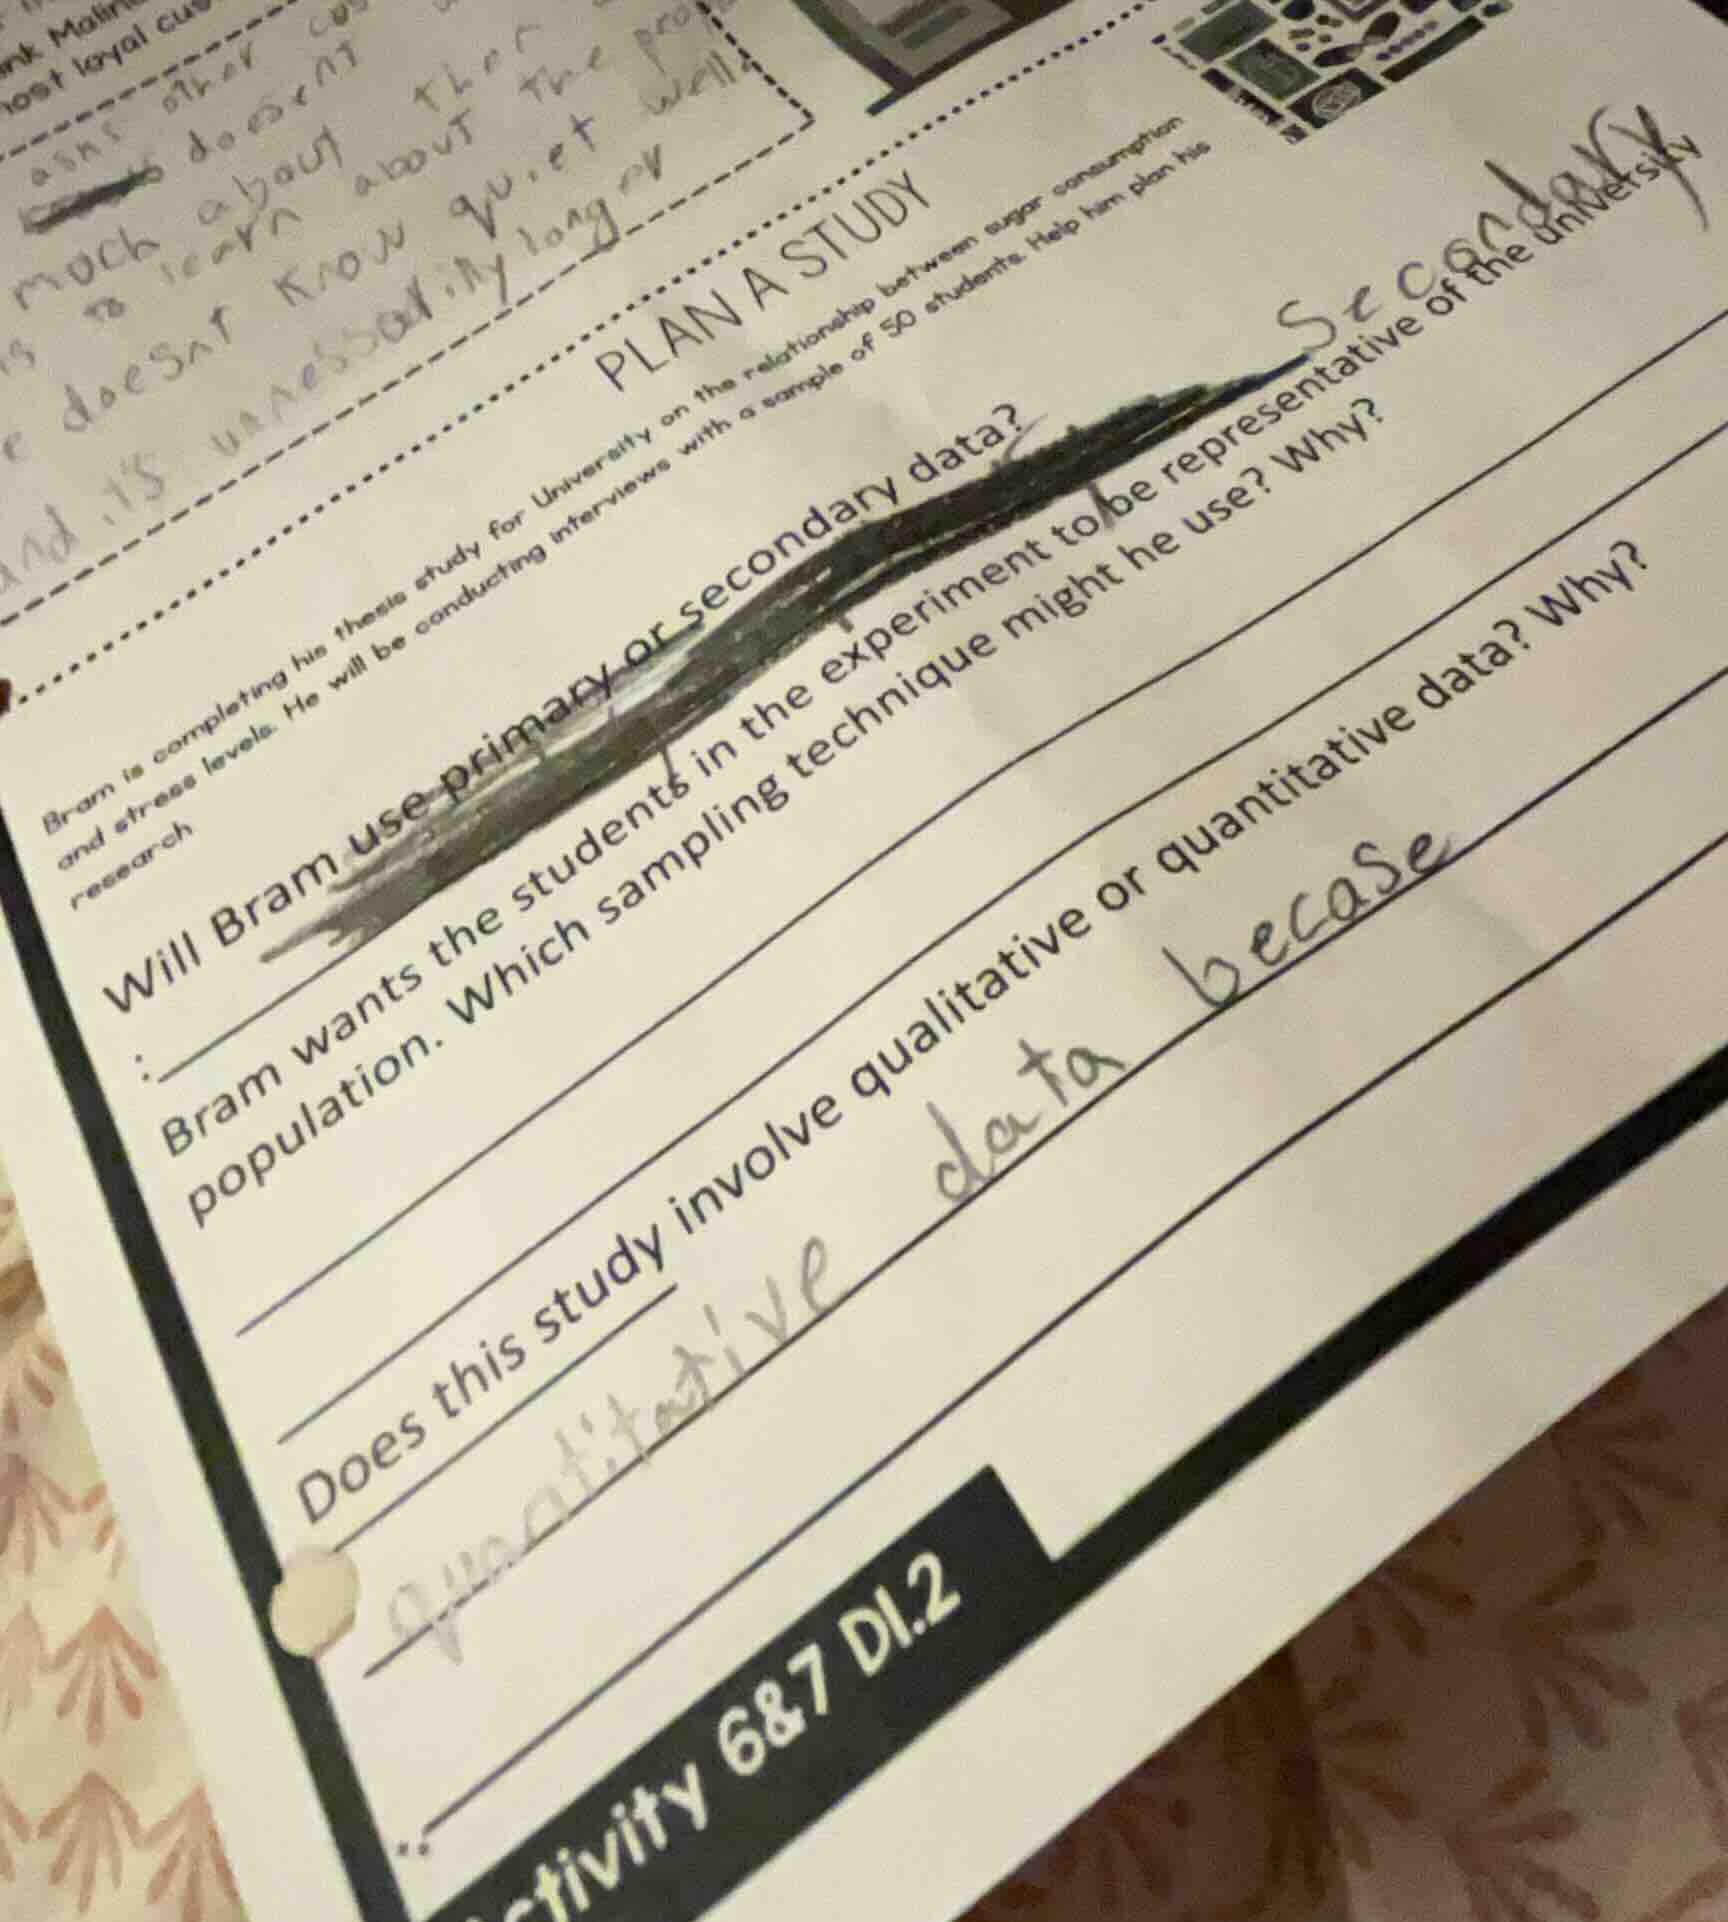 ank Malin
most loyal cus
asks other cus
doesent
much about ther
is to learn about the prop
e doesnt know quiet well
and it's unnessarily long or
PLAN A STUDY
Bram is completing his thesis study for University on the relationship between sugar consumption
and stress levels. He will be conducting interviews with a sample of 50 students. Help him plan his
research
Will Bram use primary or secondary data?
Secondary
:
Bram wants the students in the experiment to be representative of the university
population. Which sampling technique might he use? Why?
Does this study involve qualitative or quantitative data? Why?
quatitative data becase
ctivity 6&7 D1.2